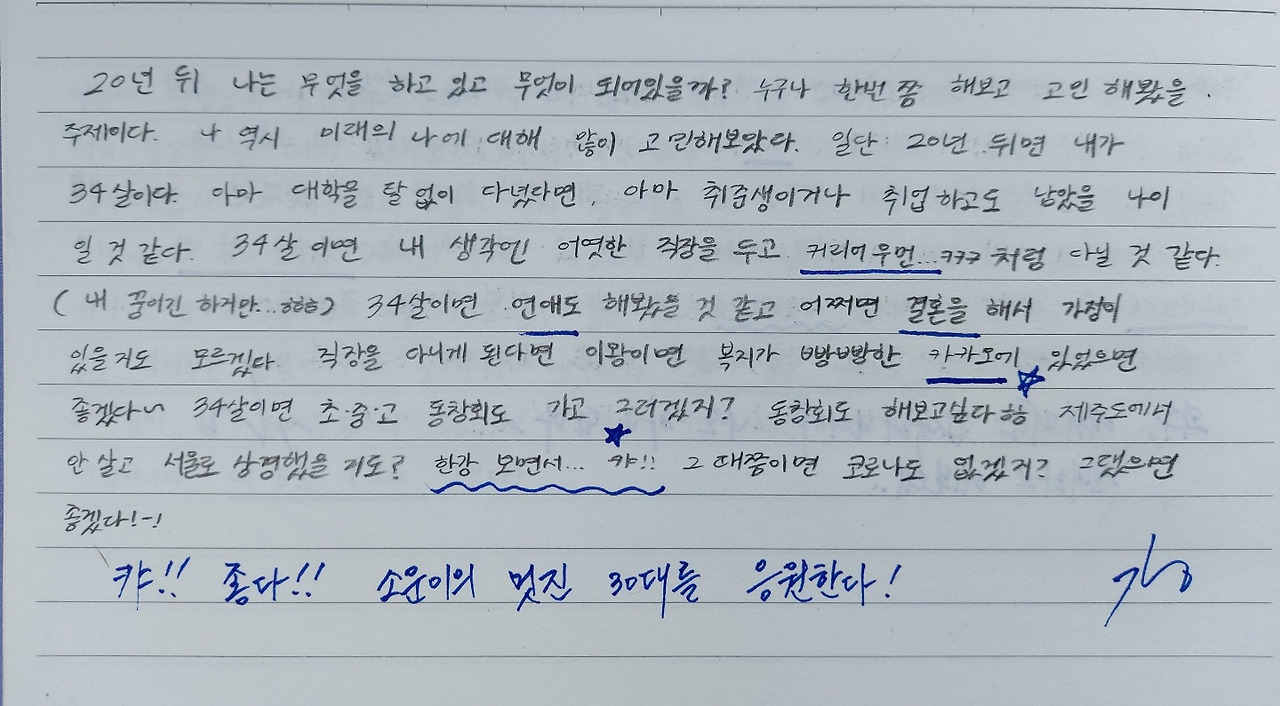 20년 뒤 나는 무엇을 하고 있고 무엇이 되어있을까? 누구나 한번 쯤 해보고 고민 해봤을
주제이다. 나 역시 미래의 나에 대해 많이 고민해보았다. 일단 20년 뒤면 내가
34살이다. 아마 대학을 탈 없이 다녔다면, 아마 취준생이거나 취업하고도 남았을 나이
일 것 같다. 34살이면 내 생각엔 어엿한 직장을 두고 커리어우먼...ㅋㅋㅋ처럼 다닐 것 같다.
(내 꿈이긴 하지만...ㅎㅎㅎ) 34살이면 연애도 해봤을 것 같고 어쩌면 결혼을 해서 가정이
있을지도 모르겠다. 직장을 다니게 된다면 이왕이면 복지가 빵빵한 카카오에 있었으면
좋겠다~ 34살이면 초·중·고 동창회도 가고 그러겠지? 동창회도 해보고싶다 ㅎㅎ 제주도에서
안 살고 서울로 상경했을 지도? 한강 보면서... 캬!! 그 때쯤이면 코로나도 없겠지? 그랬으면
좋겠다!-!
캬!! 좋다!! 소윤이의 멋진 30대를 응원한다!